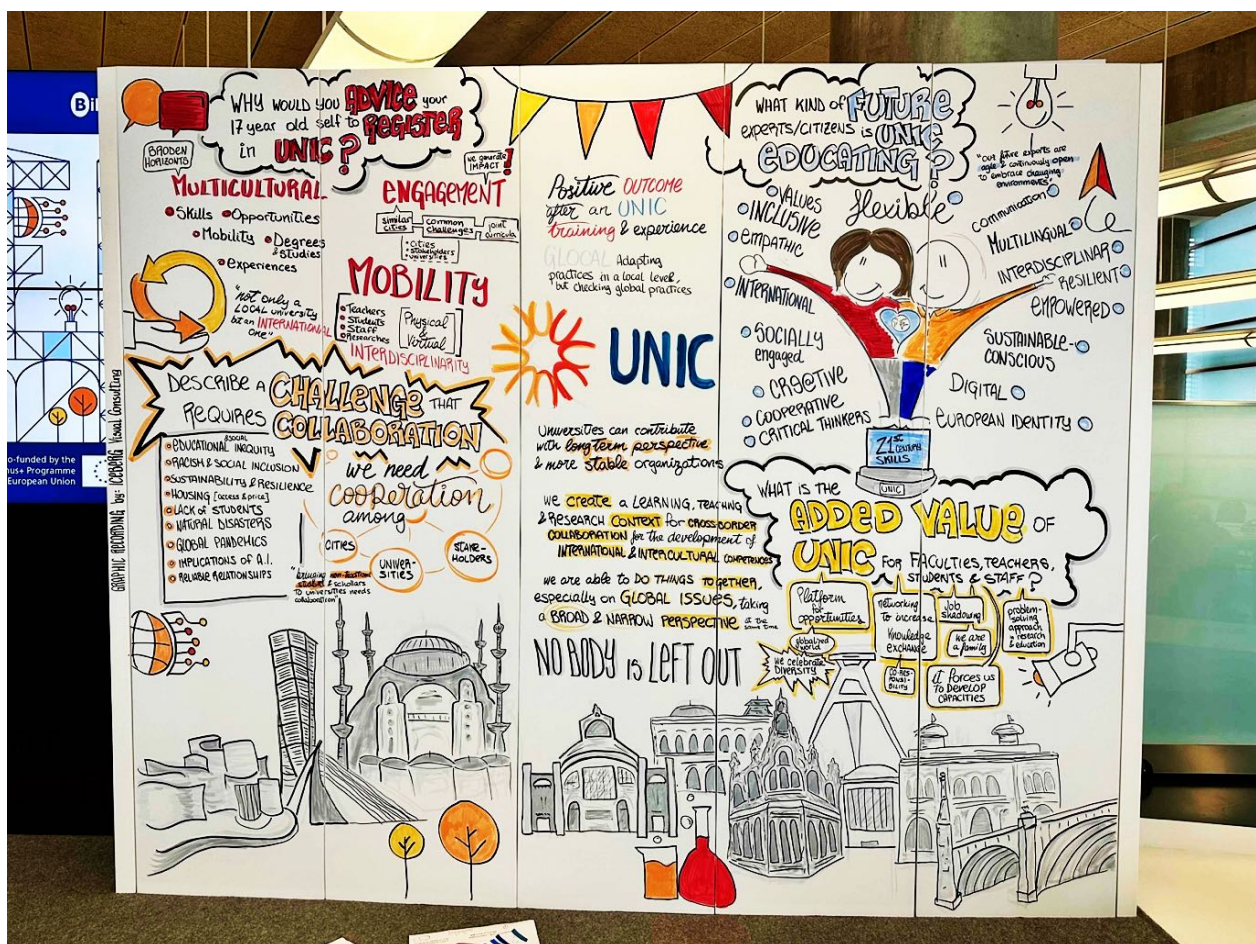 WHY WOULD YOU ADVICE your
17 year old self to REGISTER
in UNIC?
BRODEN
HORIZONTS
MULTICULTURAL
Skills
Opportunities
Mobility
Degrees
& studies
experiences
"not only a
LOCAL university
but an INTERNATIONAL
one"
we generate
IMPACT!
ENGAGEMENT
similar
cities
common
challenges
joint
curricula
Cities
stakeholders
universities
MOBILITY
Teachers
Students
Staff
Researches
Physical
&
Virtual
INTERDISCIPLINARITY
DESCRIBE A CHALLENGE THAT
REQUIRES COLLABORATION
EDUCATIONAL & SOCIAL INEQUITY
RACISH & SOCIAL INCLUSION
SUSTAINABILITY & RESILIENCE
HOUSING [access & price]
LACK OF STUDENTS
NATURAL DISASTERS
GLOBAL PANDEMICS
IMPLICATIONS OF A.I.
RELIABLE RELATIONSHIPS
we need
cooperation
among
CITIES
UNIVER-
SITIES
STAKE-
HOLDERS
& scholars
TO universities needs
collaboration"
GRAPHIC RECORDING by: ICEBERG Visual Consulting
Positive OUTCOME
after an UNIC
training & experience
GLOCAL Adapting
practices in a local level,
but checking global practices
UNIC
Universities can contribute
with long term perspective
& more stable organizations
we create a LEARNING, TEACHING
& RESEARCH CONTEXT for CROSS-BORDER
COLLABORATION for the development of
INTERNATIONAL & INTERCULTURAL COMPETENCES
we are able to DO THINGS TOGETHER,
especially on GLOBAL ISSUES, taking
a BROAD & NARROW PERSPECTIVE at the
same time
NOBODY is LEFT OUT
WHAT KIND of FUTURE
experts/citizens is UNIC
EDUCATING?
"our future experts are
agile & continuously open
to embrace changing
environments"
VALUES
INCLUSIVE
empathic
INTERNATIONAL
SOCIALLY
engaged
CR@CTIVE
COOPERATIVE
CRITICAL THINKERS
flexible
communication
MULTILINGUAL
INTERDISCIPLINAR
RESILIENT
EMPOWERED
SUSTAINABLE-
CONSCIOUS
DIGITAL
EUROPEAN IDENTITY
21st
CENTURY
SKILLS
UNIC
WHAT IS THE
ADDED VALUE OF
UNIC FOR FACULTIES, TEACHERS,
STUDENTS & STAFF?
Platform
for
opportunities
networking
to increase
Knowledge
exchange
Job
shadowing
we are
a family
problem-
solving
approach
in research
& education
globalized
world
we celebrate
DIVERSITY
CO-RES-
PONSI-
BILITY
IT FORCES US
TO DEVELOP
CAPACITIES
co-funded by the
Programme
European Union